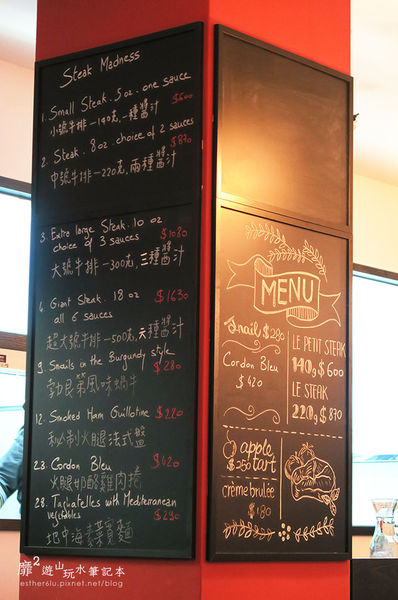 Steak Madness
1. Small Steak. 5 oz. one sauce
小號牛排—140克,一種醬汁 $600
2. Steak. 8 oz. choice of 2 sauces
中號牛排—220克,兩種醬汁 $870
3. Extra large Steak. 10 oz $1080
choice of 3 sauces
大號牛排—300克,三種醬汁
6. Giant Steak. 18 oz $1630
all 6 sauces
超大號牛排—500克,六種醬汁
9. Snails in the Burgundy style
勃艮第風味蝸牛 $280
12. Smoked Ham Guillotine $220
私制火腿法式盤
23. Cordon Bleu $420
火腿奶酪雞肉捲
28. Tagliatelles with Mediterranean
vegetables $290
地中海素菜寬麵
MENU
Snail $280
Cordon Bleu
$420
LE PETIT STEAK
140g $600
LE STEAK
220g $870
apple
$250 tart
crème brulée
$180
靡²遊山玩水筆記本
esther6lu.pixnet.net/blog